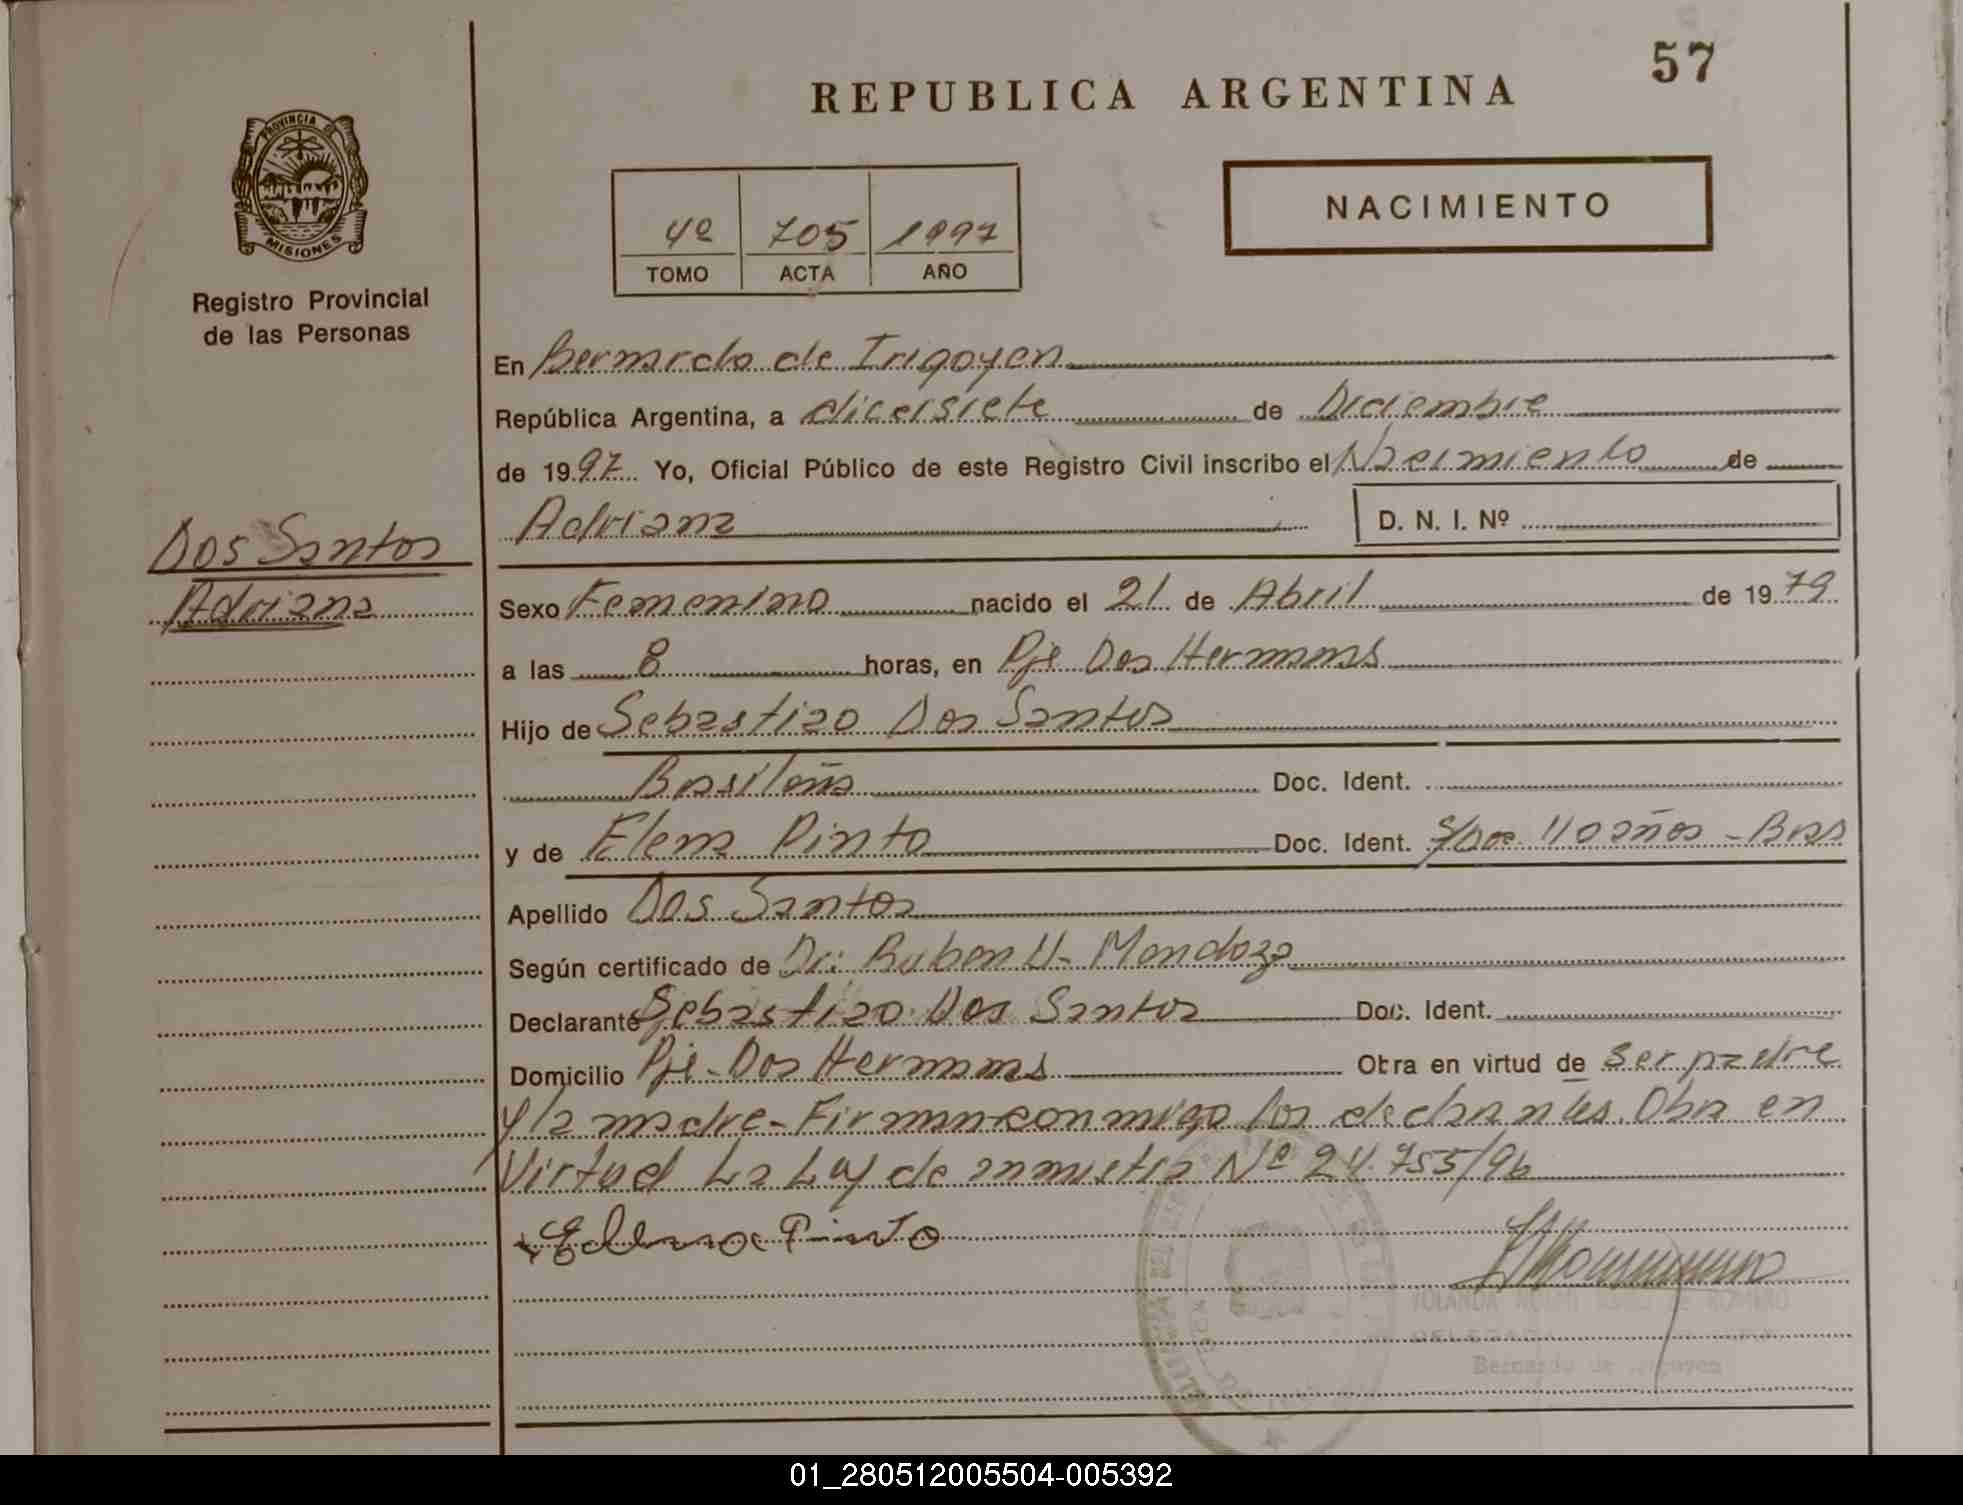 57
REPUBLICA ARGENTINA
PROVINCIA DE
MISIONES
Registro Provincial
de las Personas
4º 705 1997
TOMO ACTA AÑO
NACIMIENTO
En Bernardo de Irigoyen
República Argentina, a diecisiete de Diciembre
de 1997 Yo, Oficial Público de este Registro Civil inscribo el Nacimiento de
Adriana D. N. I. Nº
Dos Santos
Adriana
Sexo Femenino nacido el 21 de Abril de 1979
a las 8 horas, en Pje Dos Hermanas
Hijo de Sebastiao Dos Santos
Brasileña Doc. Ident.
y de Elena Pinto Doc. Ident. S/Doc. 40 años - Bras
Apellido Dos Santos
Según certificado de Dr: Ruben H. Mendoza
Declarante Sebastiao Dos Santos Doc. Ident.
Domicilio Pje. Dos Hermanas Obra en virtud de ser padre
y la madre - Firman conmigo los declarantes. Obra en
Virtud La Ley de amnistia Nº 24.755/96
Elena Pinto
YOLANDA
DE ROMERO
Bernardo de Irigoyen
01_280512005504-005392